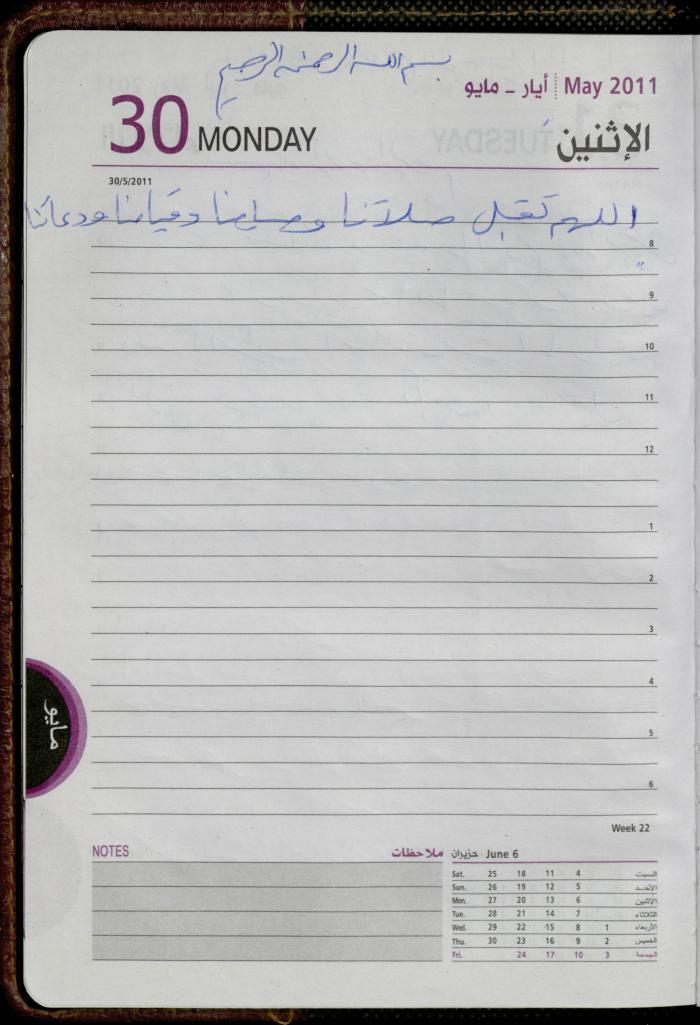 بسم الله الرحمن الرحيم
أيار - مايو May 2011
30 MONDAY الإثنين
30/5/2011
اللهم تقبل صلاتنا وصيامنا وقيامنا ودعائنا
8
9
10
11
12
1
2
3
4
5
6
مايو
Week 22
NOTES ملاحظات
حزيران June 6
Sat. 25 18 11 4 السبت
Sun. 26 19 12 5 الأحد
Mon. 27 20 13 6 الإثنين
Tue. 28 21 14 7 الثلاثاء
Wed. 29 22 15 8 1 الأربعاء
Thu. 30 23 16 9 2 الخميس
Fri. 24 17 10 3 الجمعة